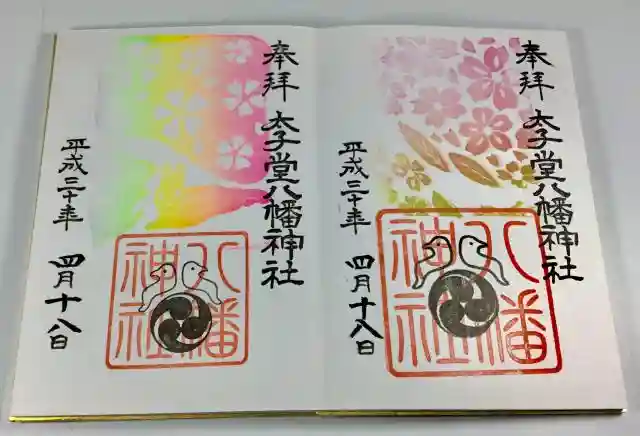 奉拝
太子堂八幡神社
八幡神社
平成三十年 四月十八日
奉拝
太子堂八幡神社
八幡神社
平成三十年 四月十八日